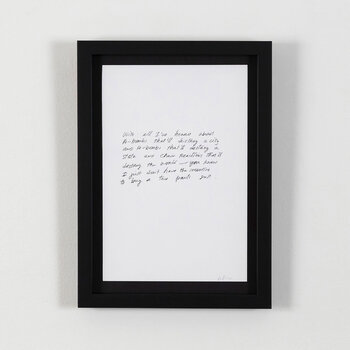 With all I've known about
A-bombs that'll destroy a city
and H-bombs that'll destroy a
state and chain reactions that'll
destroy the world — you know
I just don't have the incentive
to buy a two pants suit